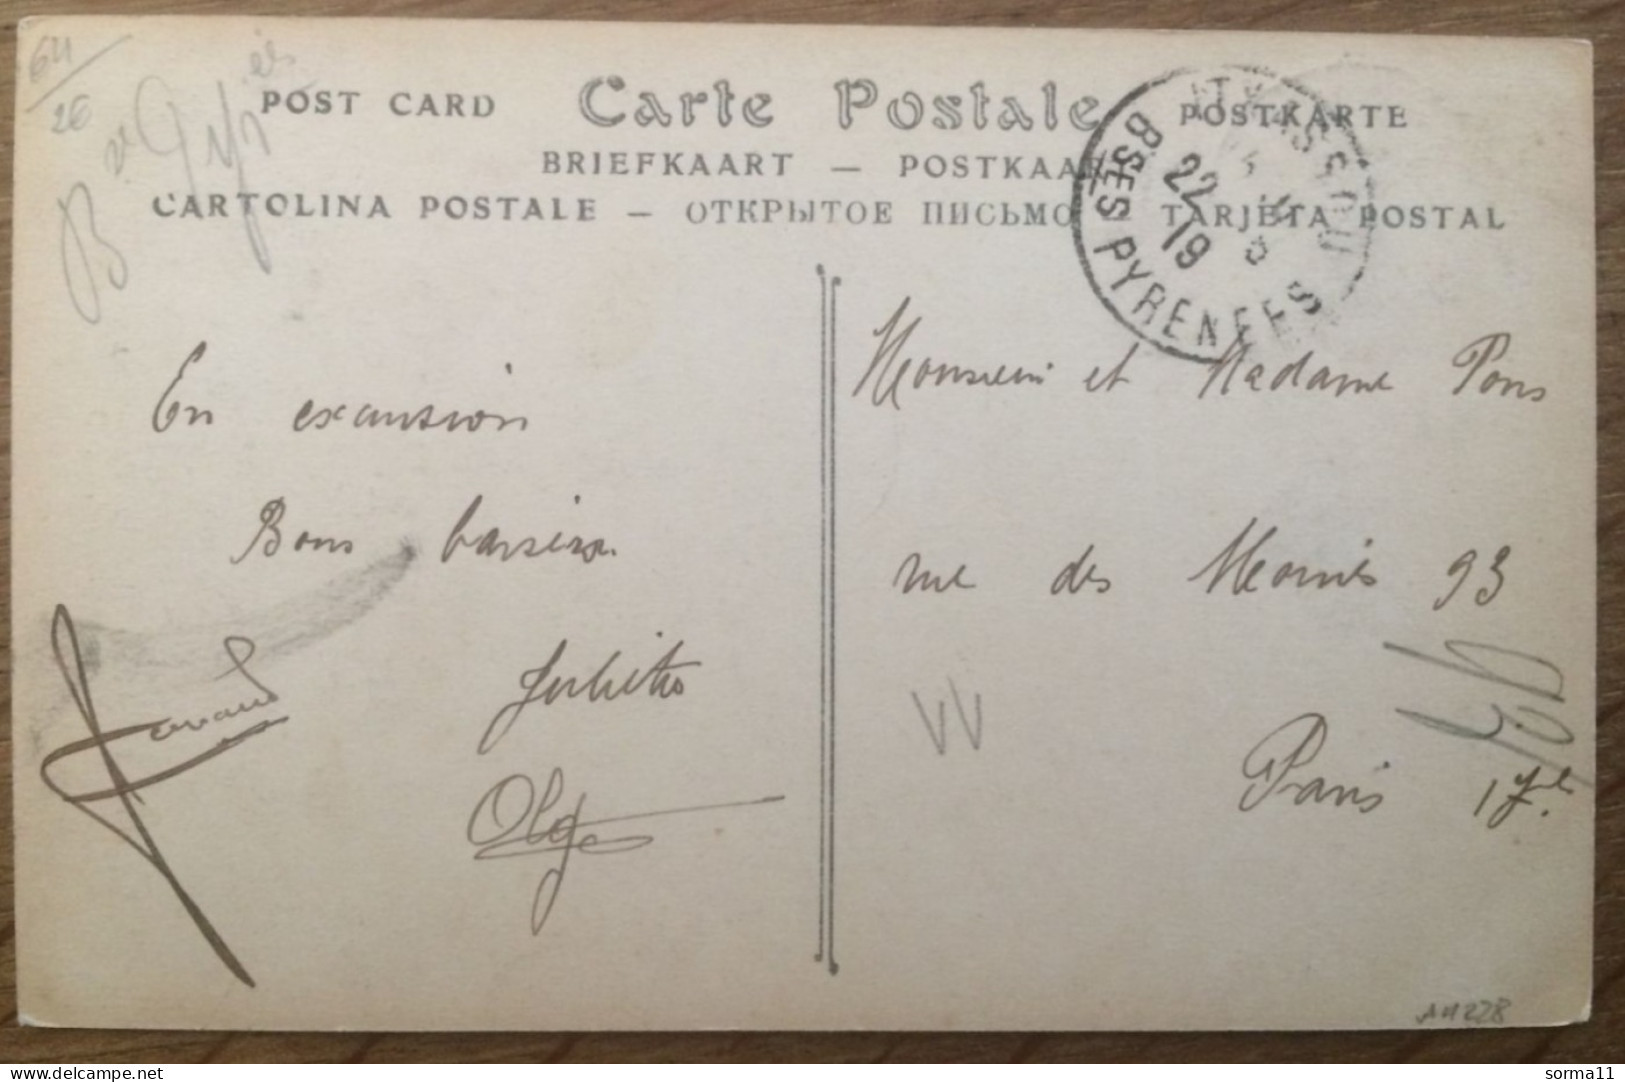 64
26
POST CARD Carte Postale POSTKARTE
BRIEFKAART — POSTKAART
CARTOLINA POSTALE — ОТКРЫТОЕ ПИСЬМО TARJETA POSTAL
BSES PYRENEES
22
19
En excursion
Bons baisers
Juliette
Olga
Monsieur et Madame Pons
rue des Moines 93
Paris 17e.
AM228
sorma11